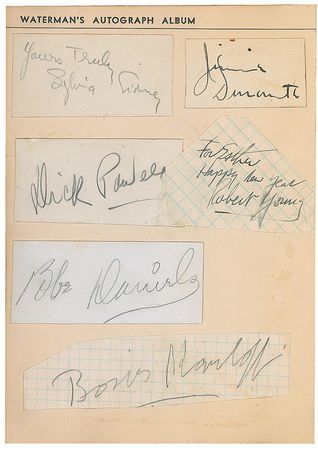 WATERMAN'S AUTOGRAPH ALBUM
Yours Truly
Sylvia Sidney
Jimmie
Durante
Dick Powell
For Esther
Happy New Year
Robert Young
Bebe Daniels
Boris Karloff